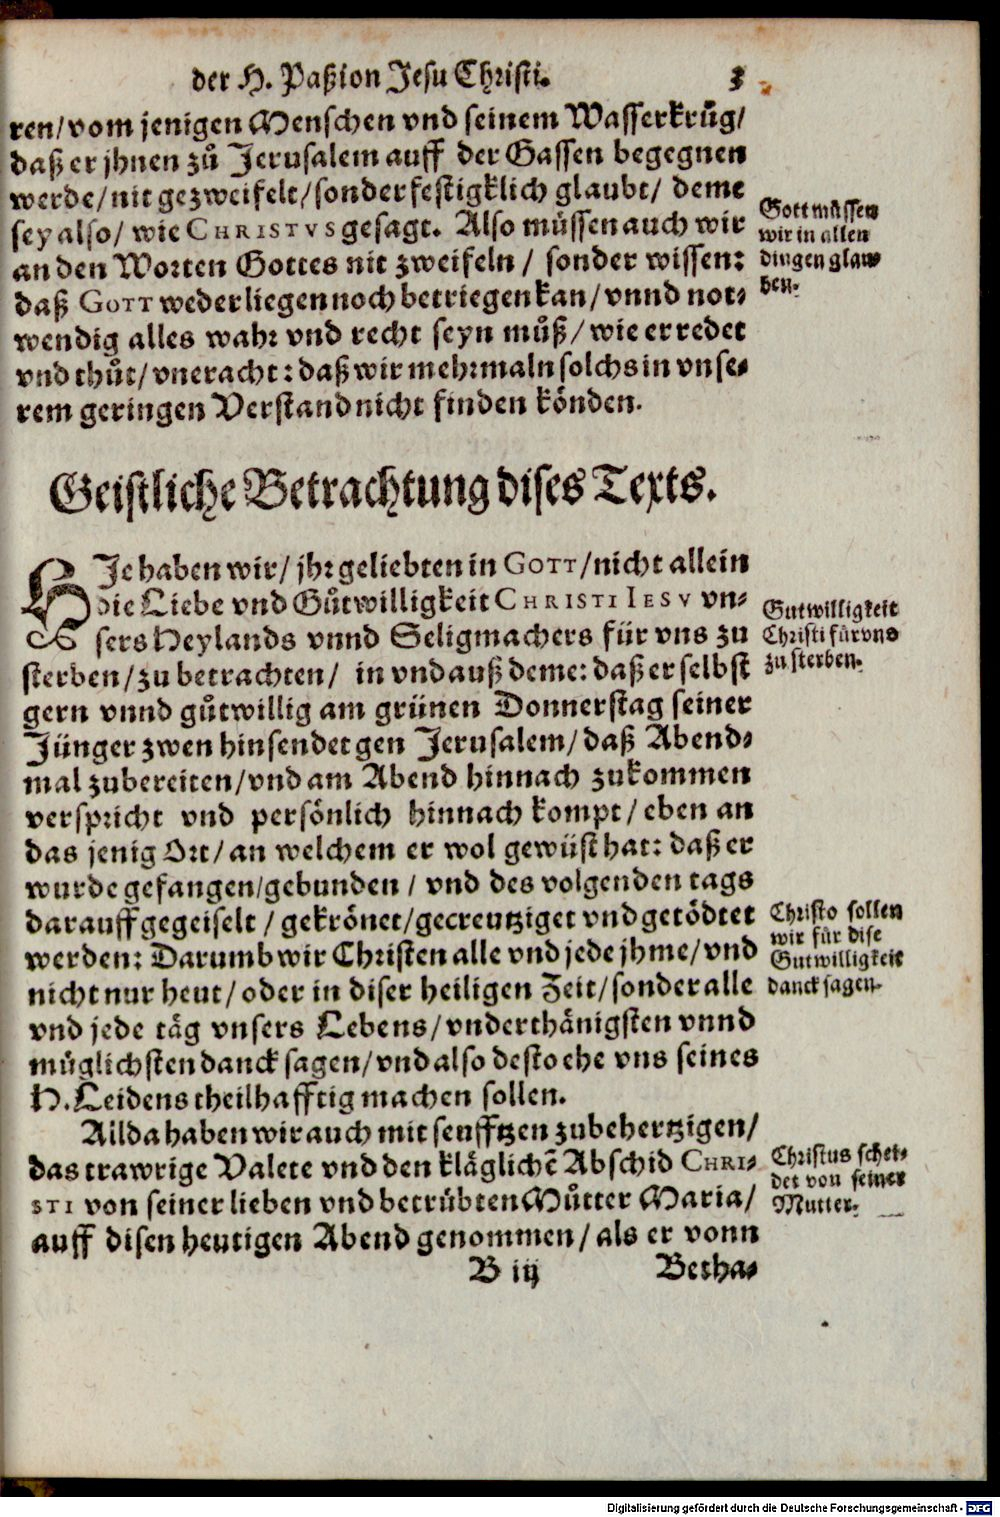 der H. Paßion Jesu Christi. 3
ren/vom jenigen Menschen vnd seinem Wasserkrůg/
daß er jhnen zů Jerusalem auff der Gassen begegnen
werde/nit gezweifelt/sonder festigklich glaubt/ deme
sey also/ wie CHRISTVS gesagt. Also müssen auch wir
an den Worten Gottes nit zweifeln / sonder wissen:
daß GOTT weder liegen noch betriegen kan/vnnd not⸗
wendig alles wahr vnd recht seyn můß/wie er redet
vnd thůt/vneracht: daß wir mehrmaln solchs in vnse⸗
rem geringen Verstand nicht finden könden.
Gott můssen
wir in allen
dingen glau⸗
ben.
Geistliche Betrachtung dises Texts.
HJe haben wir/jhr geliebten in GOTT/nicht allein
die Liebe vnd Gůtwilligkeit CHRISTI IESV vn⸗
sers Heylands vnnd Seligmachers für vns zu
sterben/zu betrachten/ in vnd auß deme: daß er selbst
gern vnnd gůtwillig am grünen Donnerstag seiner
Jünger zwen hinsendet gen Jerusalem/daß Abend⸗
mal zubereiten/vnd am Abend hinnach zukommen
verspricht vnd persönlich hinnach kompt/eben an
das jenig Ort/an welchem er wol gewüst hat: daß er
wurde gefangen/gebunden / vnd des volgenden tags
darauff gegeiselt / gekrönet/gecreutziget vnd getödtet
werden: Darumb wir Christen alle vnd jede jhme/vnd
nicht nur heut/oder in diser heiligen Zeit/sonder alle
vnd jede täg vnsers Lebens/vnderthänigsten vnnd
müglichsten danck sagen/vnd also desto ehe vns seines
H. Leidens theilhafftig machen sollen.
Gutwilligkeit
Christi für vns
zu sterben.
Christo sollen
wir für dise
Gutwilligkeit
danck sagen.
Allda haben wir auch mit seufftzen zubehertzigen/
das trawrige Valete vnd den kläglichē Abschid CHRI⸗
STI von seiner lieben vnd betrübten Můtter Maria/
auff disen heutigen Abend genommen/als er vonn
Christus schei⸗
det von seiner
Mutter.
B iij Betha⸗
Digitalisierung gefördert durch die Deutsche Forschungsgemeinschaft - DFG